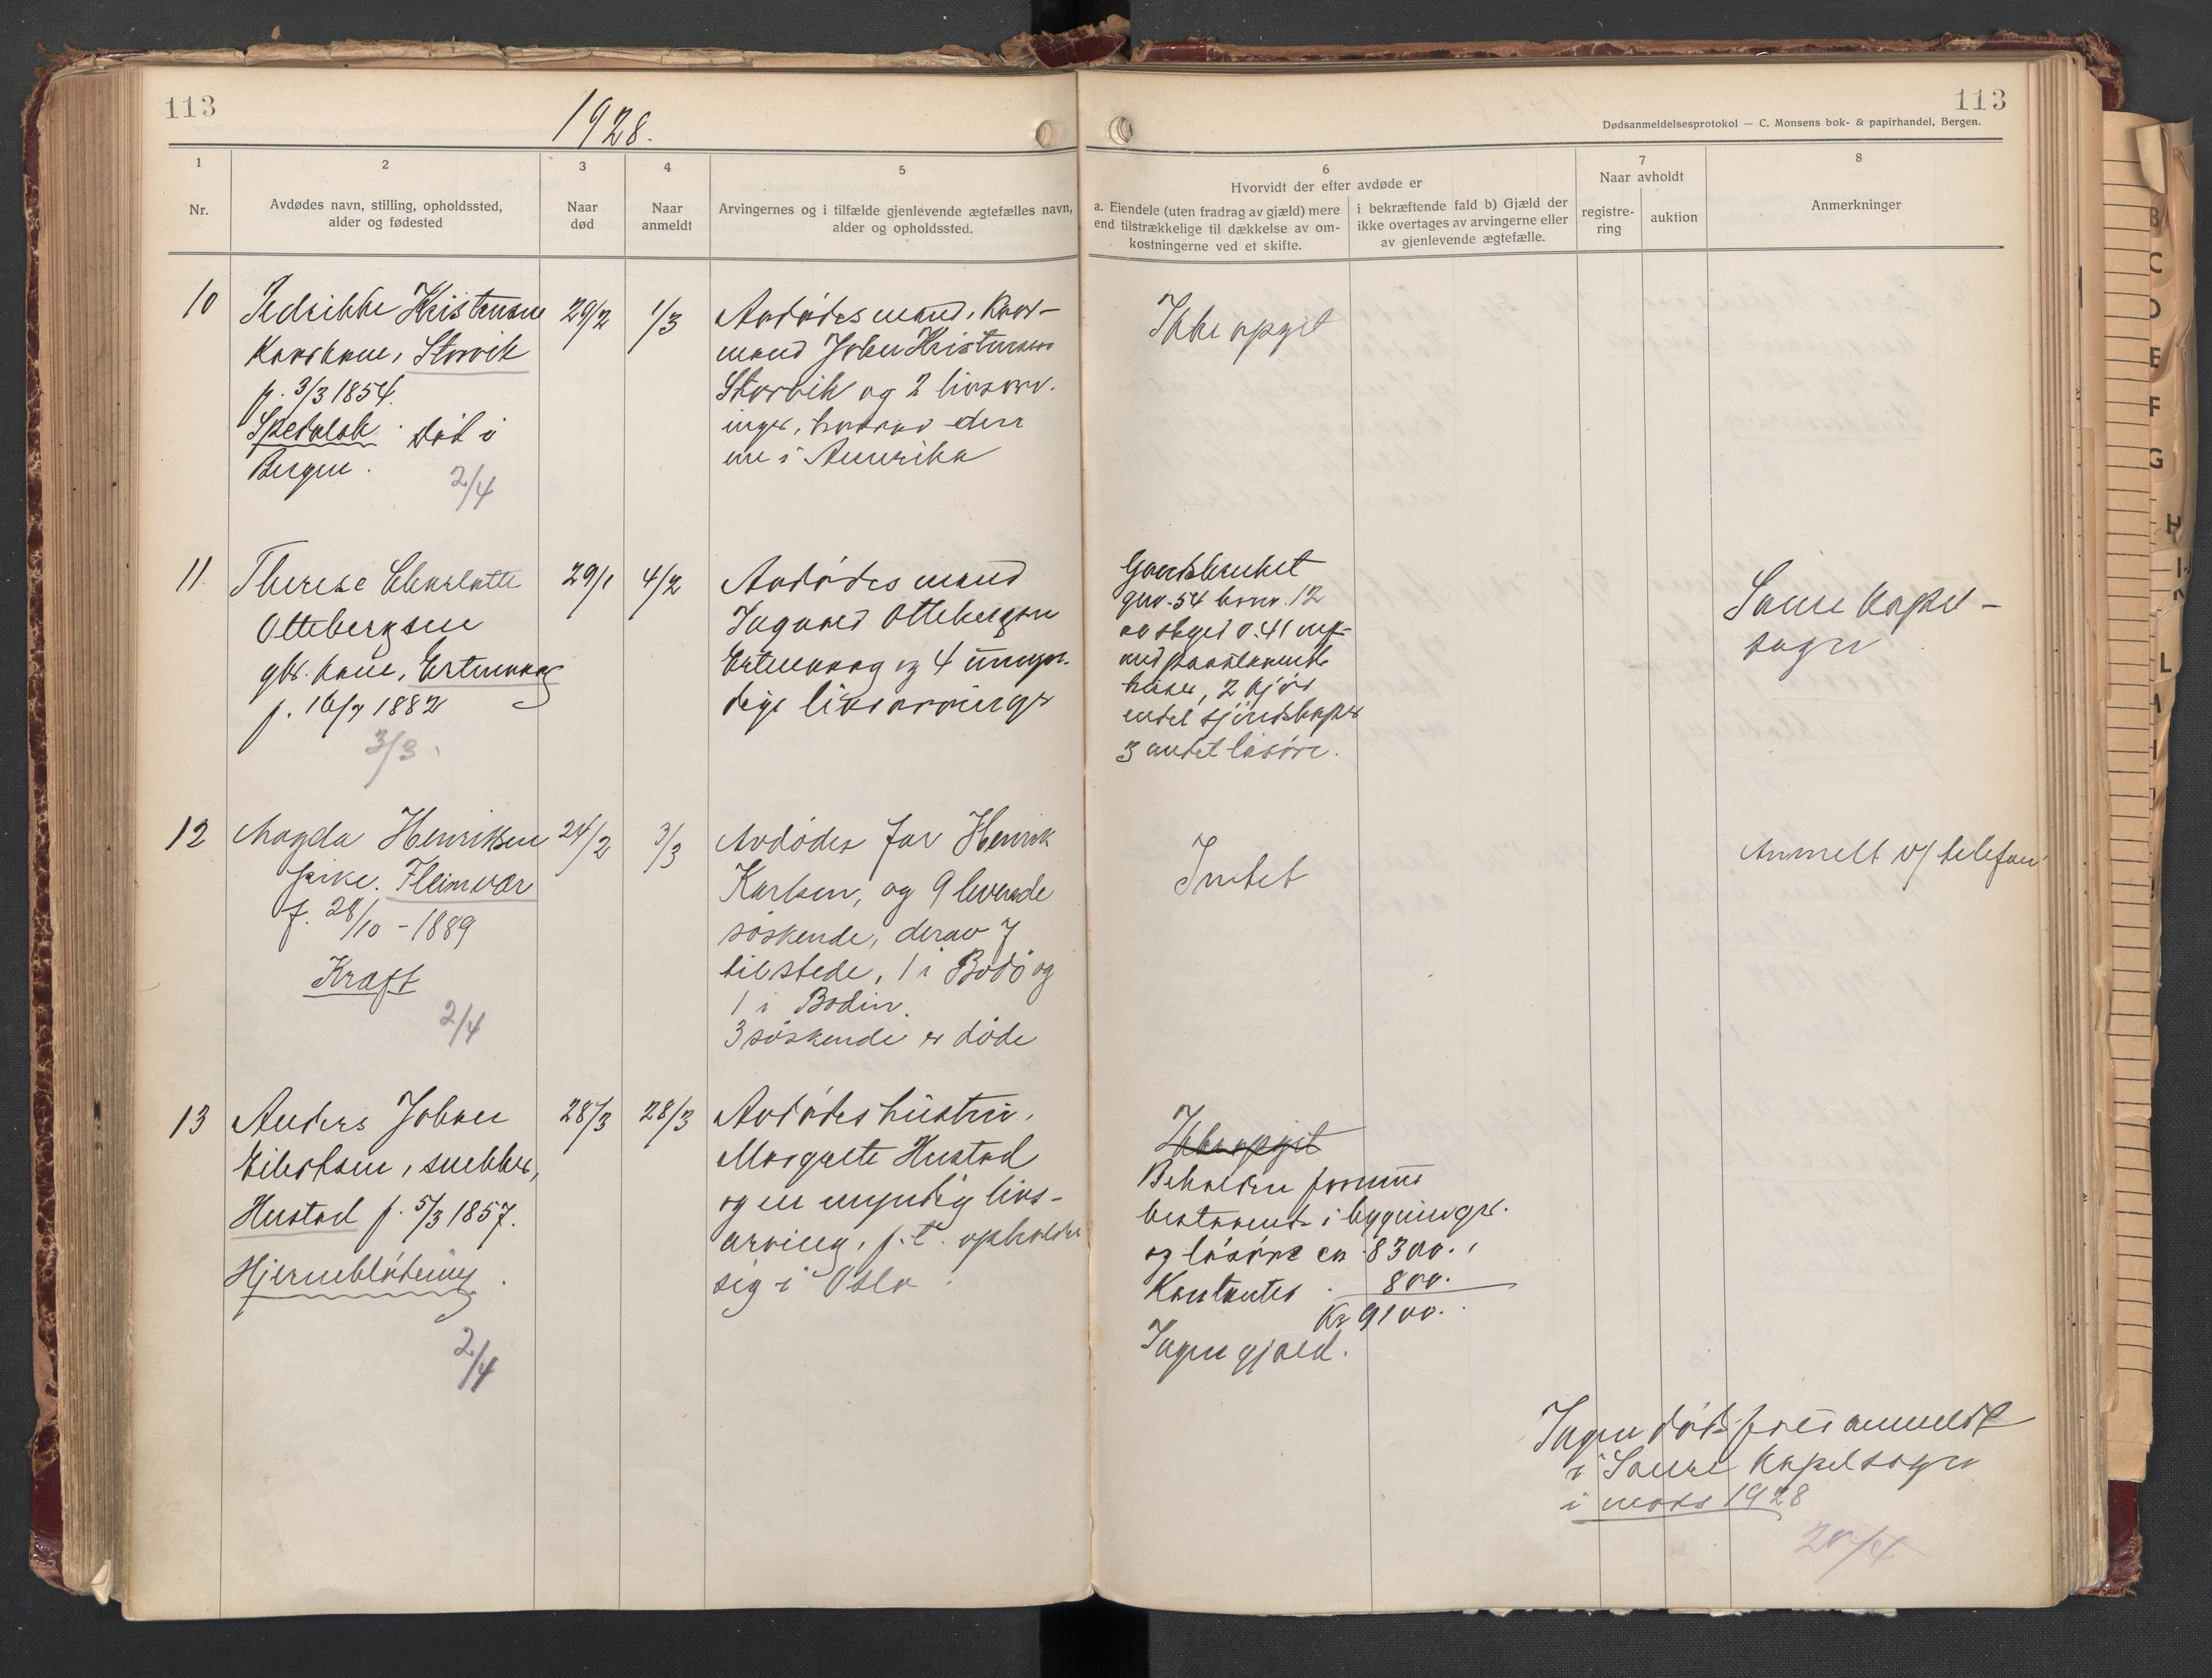 113
1928.
113
Dødsanmeldelsesprotokol — C. Monsens bok- & papirhandel, Bergen.
1
Nr.
2
Avdødes navn, stilling, opholdssted,
alder og fødested
3
Naar
død
4
Naar
anmeldt
5
Arvingernes og i tilfælde gjenlevende ægtefælles navn,
alder og opholdssted.
6
Hvorvidt der efter avdøde er
a. Eiendele (uten fradrag av gjæld) mere
end tilstrækkelige til dækkelse av om-
kostningerne ved et skifte.
i bekræftende fald b) Gjæld der
ikke overtages av arvingerne eller
av gjenlevende ægtefælle.
7
Naar avholdt
registre-
ring
auktion
8
Anmerkninger
10
Kristensen
Storvik
f. 3/3 1854.
Spedalsk. Død i
Bergen.
2/4
29/2
1/3
Avdødes mand, kaar-
mand Johan Kristensen
Storvik og 2 livsarv-
inger, hvorav den
ene i Amerika
Ikke opgit
11.
Therese Charlotte
Ottebergsen
gbr. kone, Ertenvaag
f. 16/7 1882
3/3.
29/1
4/2
Avdødes mand
Ingvard Ottebergsen
Ertenvaag og 4 umyn-
dige livsarvinger
Gaardsbruket
gnr. 54 brnr. 12
av skyld 0.41 
med paastaaende
huser, 2 kjør
endel sjøredskaper
& andet løsøre.
Sørre kapel-
sogn
12
Magda Henriksen
pike. Fleinvær
f. 28/10 - 1889
Kræft
2/4
24/2
3/3
Avdødes far Henrik
Karlsen, og 9 levende
søskende, derav 7
tilstede, 1 i Bodø og
1 i Bodin.
3 søskende er døde
Intet
Anmelt v/ telefon
13
Anders Johan
Eilertsen, snekker,
Hustad f. 5/3 1857.
Hjerneblødning.
2/4
28/3
28/3
Avdødes hustru,
Margrete Hustad
og en myndig livs-
arving, p.t. opholder
sig i Oslo.
Ikke opgit
Beholden formue
bestaaende i bygninger.
og løsøre ca 8300.,
Kontanter . 800.
Kr 9100.
Ingen gjæld.
Ingen dødsfald anmeldt
i kapelsogn
i mars 1928
20/4